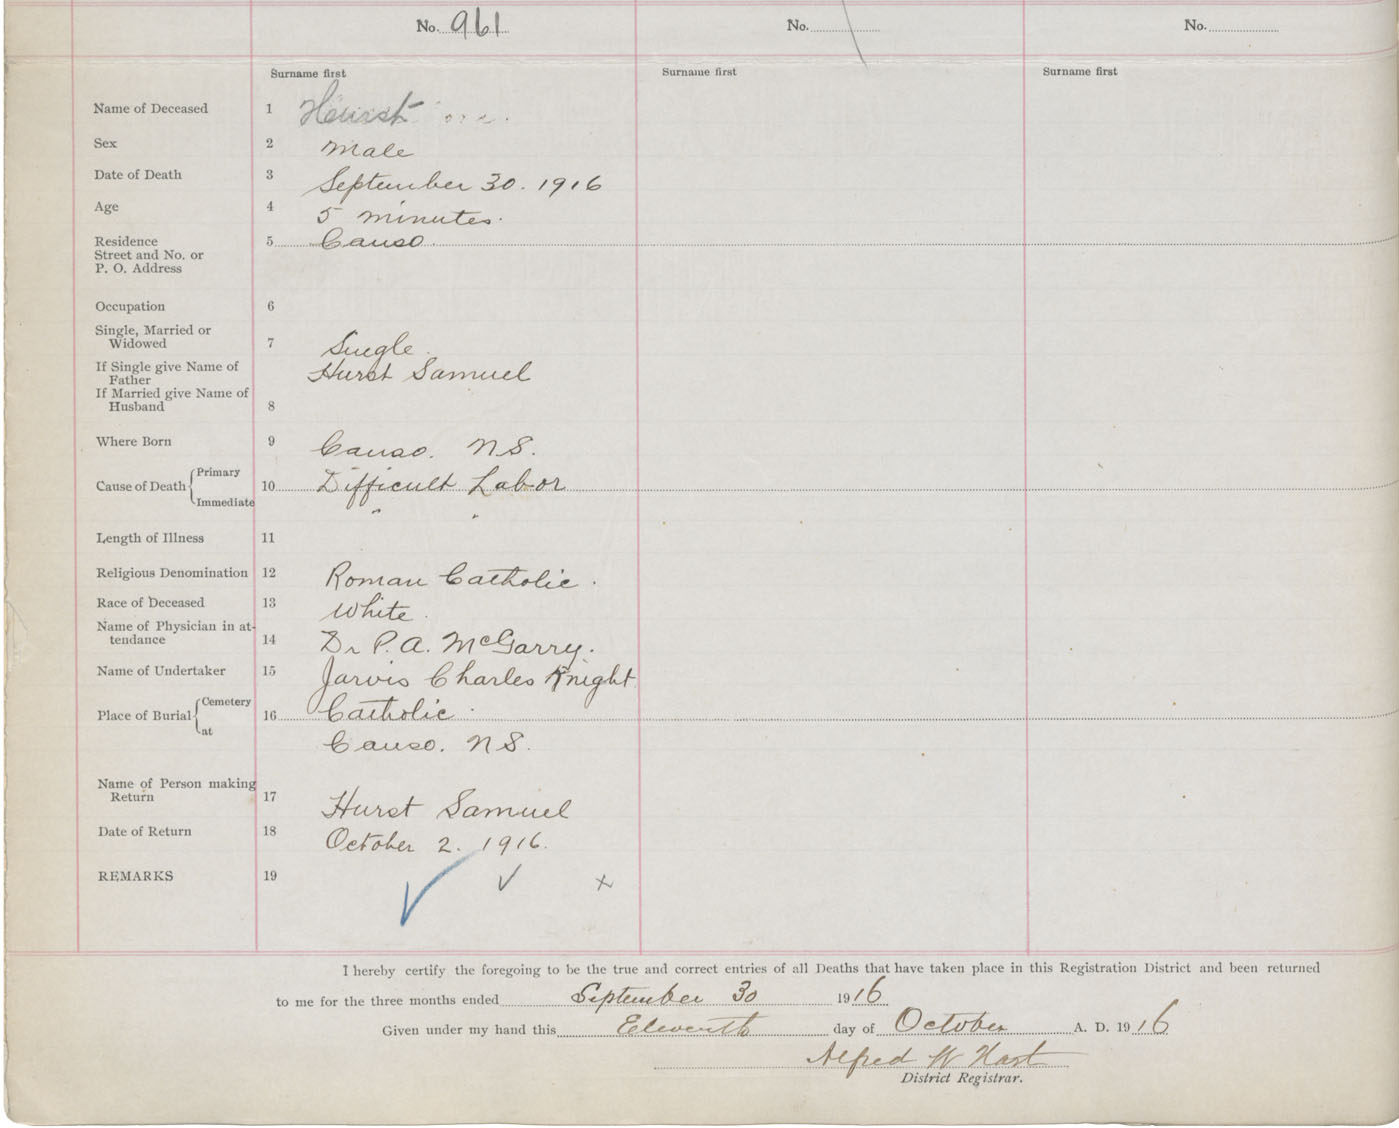 No. 961 No. No.
Surname first Surname first Surname first
Name of Deceased 1 Hurst
Sex 2 Male
Date of Death 3 September 30. 1916
Age 4 5 minutes.
Residence 5 Canso.
Street and No. or
P. O. Address
Occupation 6
Single, Married or
Widowed 7 Single.
If Single give Name of Hurst Samuel
Father
If Married give Name of
Husband 8
Where Born 9 Canso. N.S.
Primary
Cause of Death 10 Difficult Labor
Immediate " "
Length of Illness 11
Religious Denomination 12 Roman Catholic.
Race of Deceased 13 White.
Name of Physician in at-
tendance 14 Dr P. A. McGarry.
Name of Undertaker 15 Jarvis Charles Knight
Cemetery Catholic.
Place of Burial 16
at Canso. N.S.
Name of Person making
Return 17 Hurst Samuel
Date of Return 18 October 2. 1916.
REMARKS 19
I hereby certify the foregoing to be the true and correct entries of all Deaths that have taken place in this Registration District and been returned
to me for the three months ended September 30 1916
Given under my hand this Eleventh day of October A. D. 1916
Alfred W Hart
District Registrar.